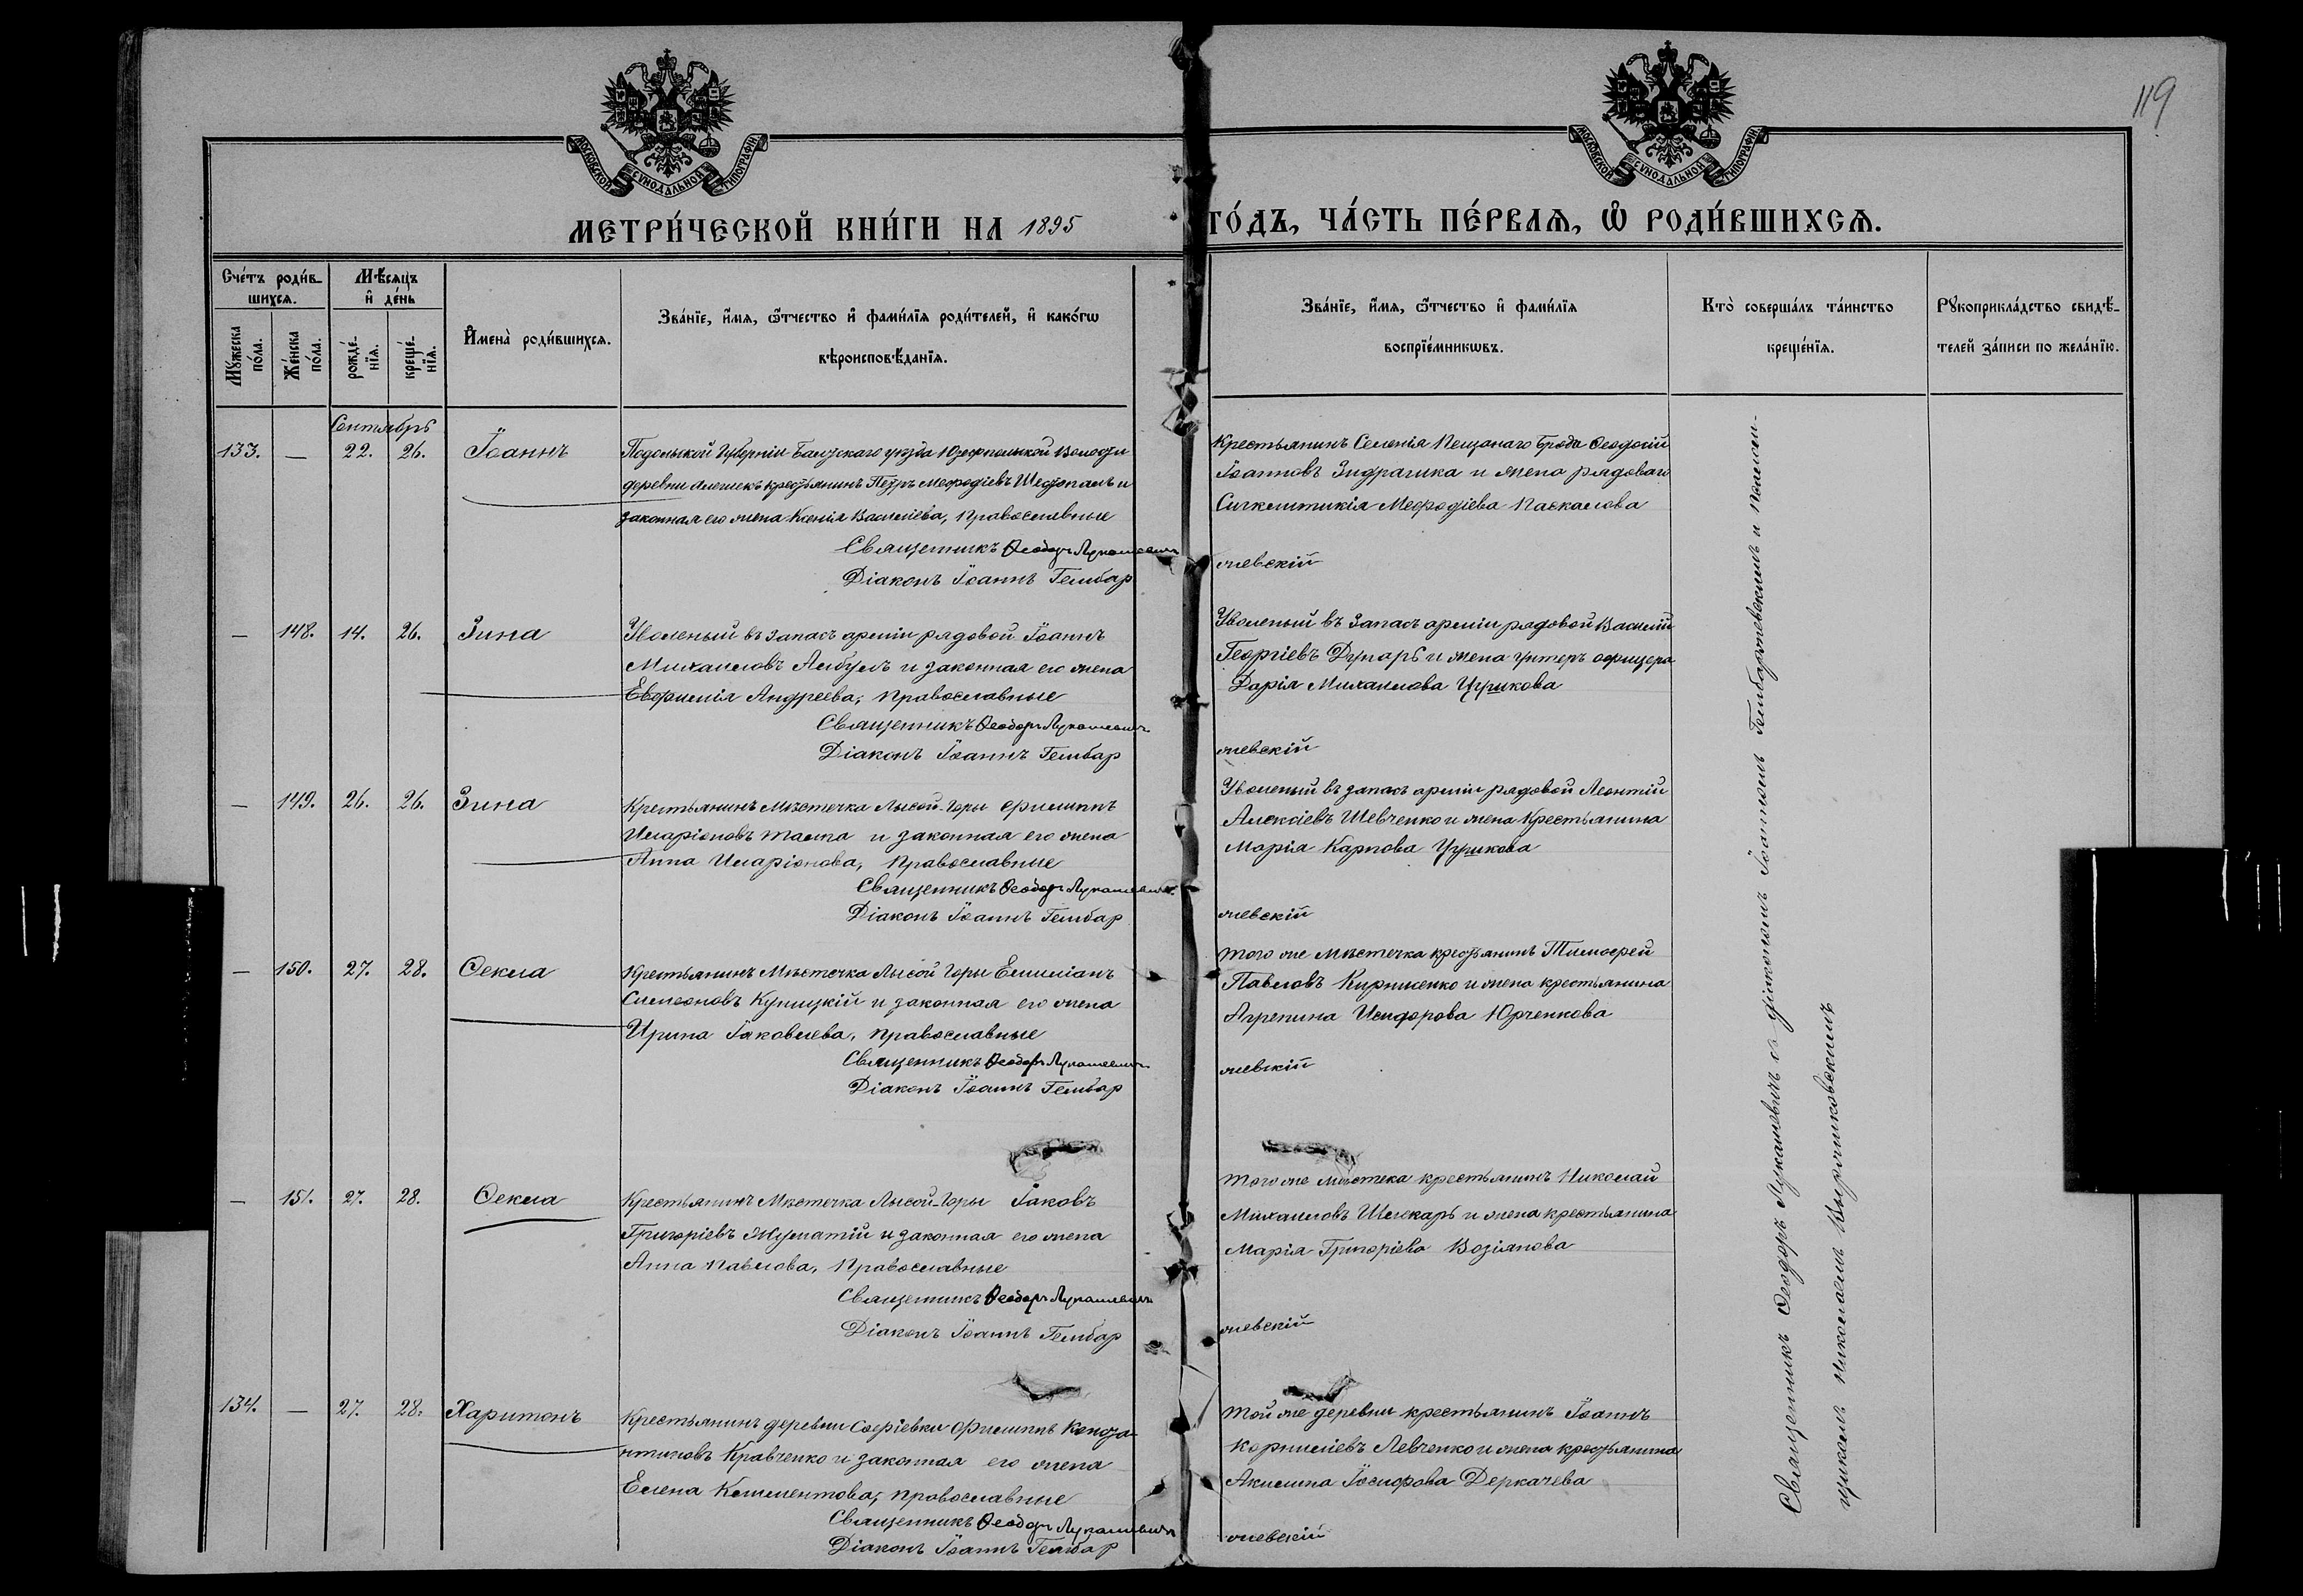 119
МОСКОВСКОЙ СУНОДАЛЬНОЙ ТИПОГРАФІИ
МОСКОВСКОЙ СУНОДАЛЬНОЙ ТИПОГРАФІИ
МЕТРИ́ЧЕСКОЙ КНИ́ГИ НА 1895 ГО́ДЪ, ЧА́СТЬ ПЕ́РВАѦ, Ѽ РОДИ́ВШИХСѦ.
Сче́тъ роди́в-
шихсѧ.
Мꙋ́жеска
по́ла.
Же́нска
по́ла.
Мѣ́сѧцъ
и҆ де́нь
рожде́-
нїѧ.
креще́-
нїѧ.
И҆мена̀ роди́вшихсѧ.
Зва́нїе, и҆́мѧ, ѻ҆́тчество и҆ фами́лїѧ роди́телей, и҆ како́гѡ
вѣроисповѣ́данїѧ.
Зва́нїе, и҆́мѧ, ѻ҆́тчество и҆ фами́лїѧ
воспрїе́мникѡвъ.
Кто̀ соверша́лъ та́инство
креще́нїѧ.
Рꙋкоприкла́дство свидѣ́-
телей за́писи по жела́нїю.
Сентябрь
133. — 22. 26. Іоаннъ
Подольской Губерніи Балтскаго уѣзда Юзефпольской Волости
деревни крестьянинъ Петръ Меѳодіевъ Шестопалъ и
законная его жена Ксенія Васильева, православные
Священникъ Ѳеодоръ Лукашевичъ
Діаконъ Іоаннъ Гембар
Крестьянинъ Селенія Пещанаго Брода Ѳеодосій
Іоанновъ и жена рядоваго
Меѳодіева Паскалова
жевскій
— 148. 14. 26. Зина
Уволеный въ запасъ арміи рядовой Іоаннъ
Михаиловъ Албулъ и законная его жена
Евфимія Андреева, православные
Священникъ Ѳеодоръ Лукашевичъ
Діаконъ Іоаннъ Гембар
Уволеный въ Запасъ арміи рядовой Василій
Георгіевъ Дунарь и жена унтеръ офицера
Дарія Михаилова Цуркова
жевскій
— 149. 26. 26. Зина
Крестьянинъ Мѣстечка Лысой-Горы Филиппъ
Иларіоновъ и законная его жена
Анна Иларіонова, православные
Священникъ Ѳеодоръ Лукашевичъ
Діаконъ Іоаннъ Гембар
Уволеный въ запасъ арміи рядовой Леонтій
Алексіевъ Шевченко и жена Крестьянина
Марія Карпова Цуркова
жевскій
— 150. 27. 28. Ѳекла
Крестьянинъ Мѣстечка Лысой Горы Емиліанъ
Симеоновъ Купицкій и законная его жена
Ирина Іаковлева, православные
Священникъ Ѳеодоръ Лукашевичъ
Діаконъ Іоаннъ Гембар
того же мѣстечка крестьянинъ Тимоѳей
Павловъ Кирниченко и жена крестьянина
Агрепина Исидорова Юрченкова
жевскій
— 151. 27. 28. Ѳекла
Крестьянинъ Мѣстечка Лысой-Горы Іаковъ
Григоріевъ Жуматій и законная его жена
Анна Павлова, Православные
Священникъ Ѳеодоръ Лукашевичъ
Діаконъ Іоаннъ Гембар
того же мѣстека крестьянинъ Николай
Михаиловъ и жена крестьянина
Марія Григоріева Возіянова
жевскій
134. — 27. 28. Харитонъ
Крестьянинъ деревни Софіевки Филиппъ Конста-
нтиновъ Кравченко и законная его жена
Елена Климентова, православные
Священникъ Ѳеодоръ Лукашевичъ
Діаконъ Іоаннъ Гембар
той же деревни крестьянинъ Іоаннъ
Корниліевъ Левченко и жена крестьянина
Акилина Іосифова Деркачева
жевскій
Священникъ Ѳеодоръ Лукашевичъ съ діакономъ Іоанномъ Гембаржевскимъ и псалом-
щикомъ Николаемъ